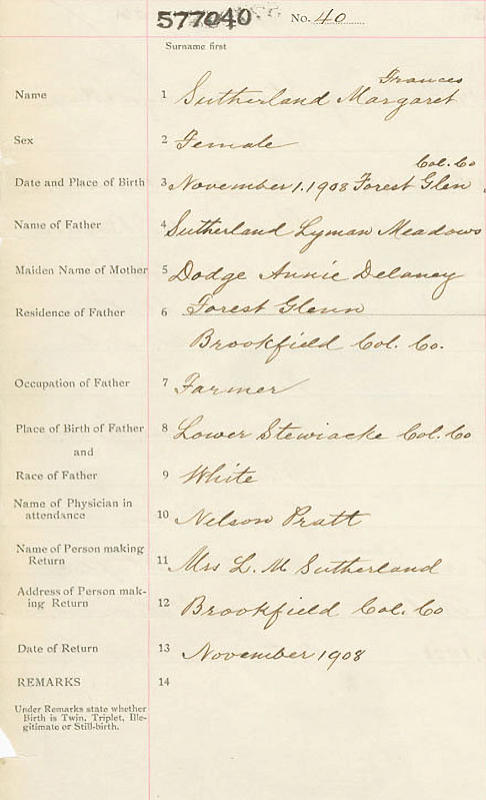 577040 No. 40
Surname first
Frances
Name 1 Sutherland Margaret
Sex 2 Female
Col. Co
Date and Place of Birth 3 November 1. 1908 Forest Glen
Name of Father 4 Sutherland Lyman Meadows
Maiden Name of Mother 5 Dodge Annie Delaney
Residence of Father 6 Forest Glenn
Brookfield Col. Co.
Occupation of Father 7 Farmer
Place of Birth of Father 8 Lower Stewiacke Col. Co
and
Race of Father 9 White
Name of Physician in
attendance 10 Nelson Pratt
Name of Person making
Return 11 Mrs L. M Sutherland
Address of Person mak-
ing Return 12 Brookfield Col. Co
Date of Return 13 November 1908
REMARKS 14
Under Remarks state whether
Birth is Twin, Triplet, Ille-
gitimate or Still-birth.